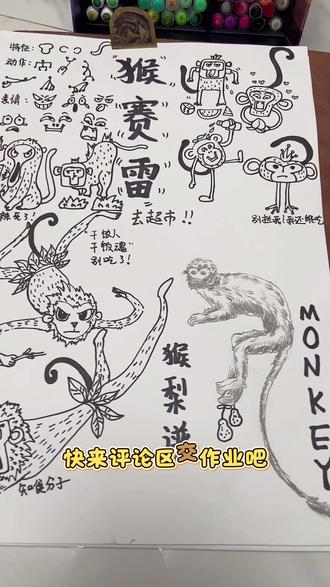 特征:
动作:
表情:
猴赛雷
去超市!!
辣死了!
干饭人
干饭魂
别吃了!
猴梨谱
MONKEY
知食分子
快来评论区交作业吧